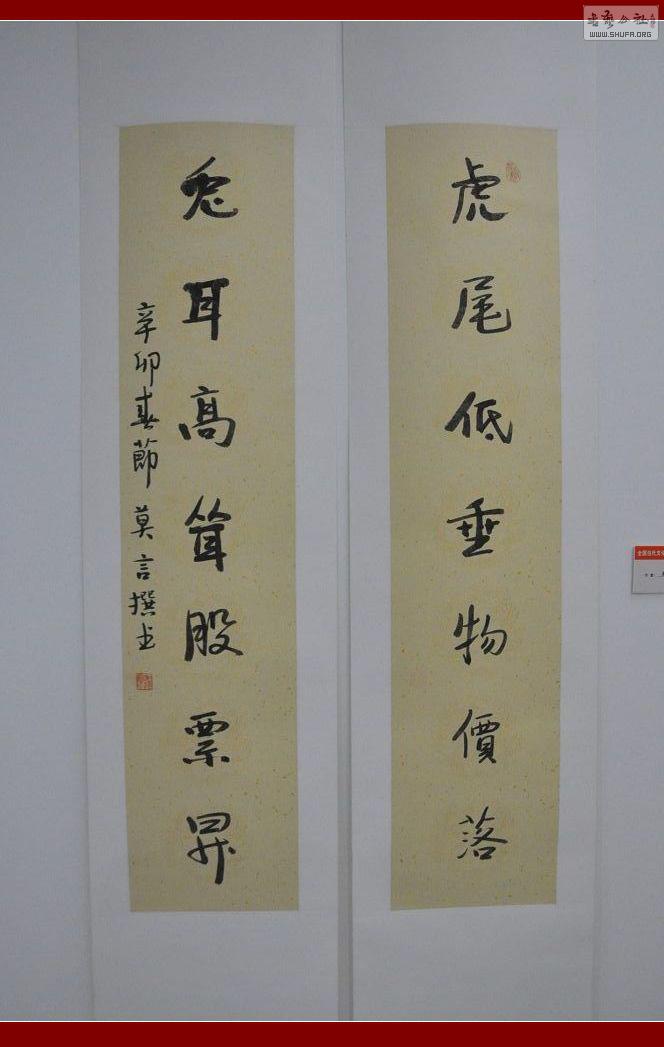 虎尾低垂物價落
兔耳高耸股票昇
辛卯春節 莫言撰书
书艺公社
WWW.SHUFA.ORG